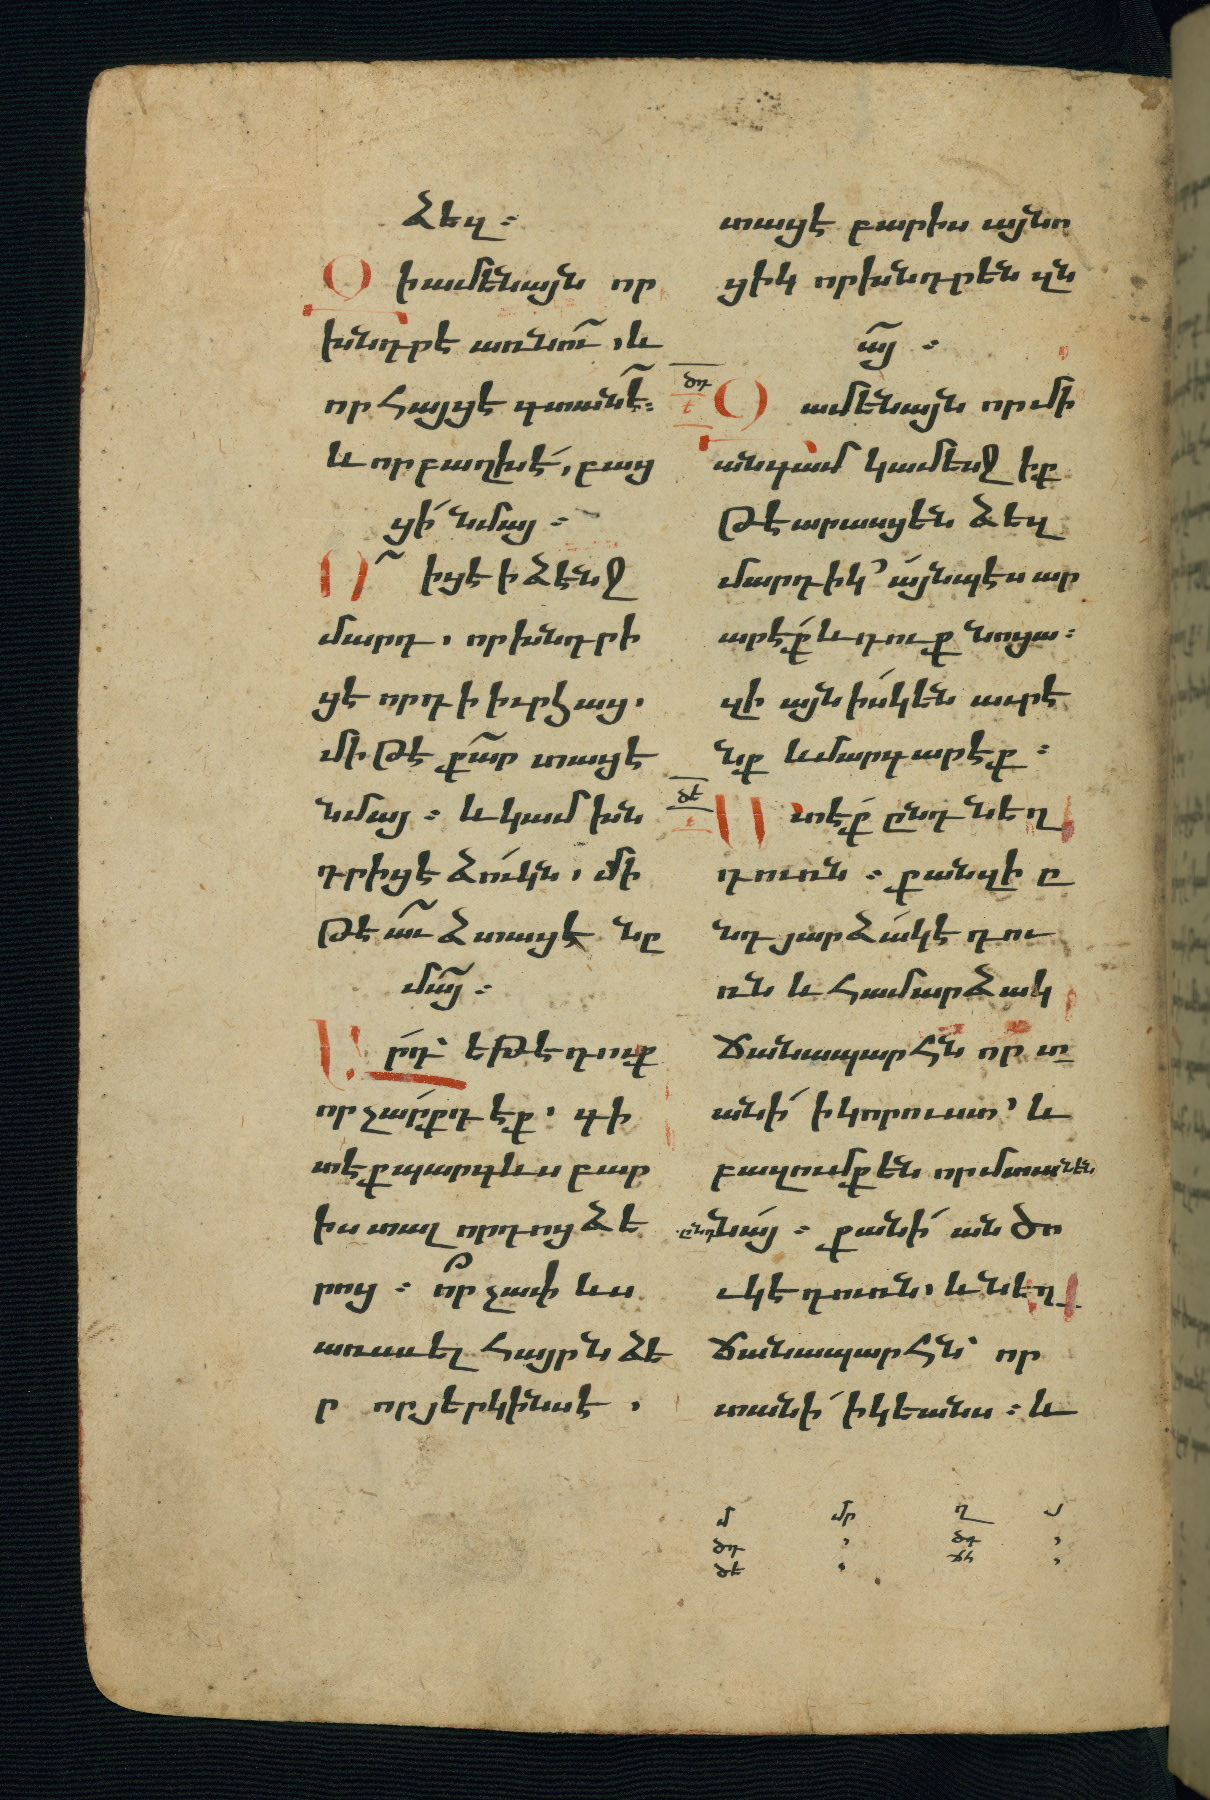 ձեզ :
Զի ամենայն որ
խնդրէ առնու՜, և
որ հայցէ գտանէ՜ :
և որ բաղխէ՛, բաց
ցի՛ նմայ :
Ո՜ իցէ ի ձէնջ
մարդ, որ խնդրի
ցէ որդի իւր հաց,
մի թէ քա՜ր տացէ
նմայ : և կամ խն
դրիցէ ձուկն, մի
թէ աւ՜ձ տացէ նը
մա՜յ :
Արդ՝ եթէ դուք
որ չարքդ էք, գի
տէք պարգևս բար
իս տալ որդոց ձե
րոց : ո՞ր չափ ևս
առաւել հայրն ձե
ր որ յերկինս է,
տացէ բարիս այնո
ցիկ որ խնդրեն զն
ա՜յ :
ծդ
Զ ամենայն որ մի
անգամ կամէսջ իք
թէ արասցեն ձեզ
մարդիկ՝ այնպէս ար
արէք և դուք նոցա :
զի այն իսկ են աւրէ
նք և մարգարէք :
ծե
Մտէք ընդ նեղ
դուռն : քանզի ը
նդ յարձակ է դու
ռն և համարձակ
ճանապարհն որ տ
անի՛ ի կորուստ՝ և
բազումք են որ մտանեն
ընդ նայ : քանի՛ անձո
ւկ է դուռն, և նեղ
ճանապարհն՝ որ
տանի՛ ի կեանս : և
մ մր ղ յ
ծդ
ծե